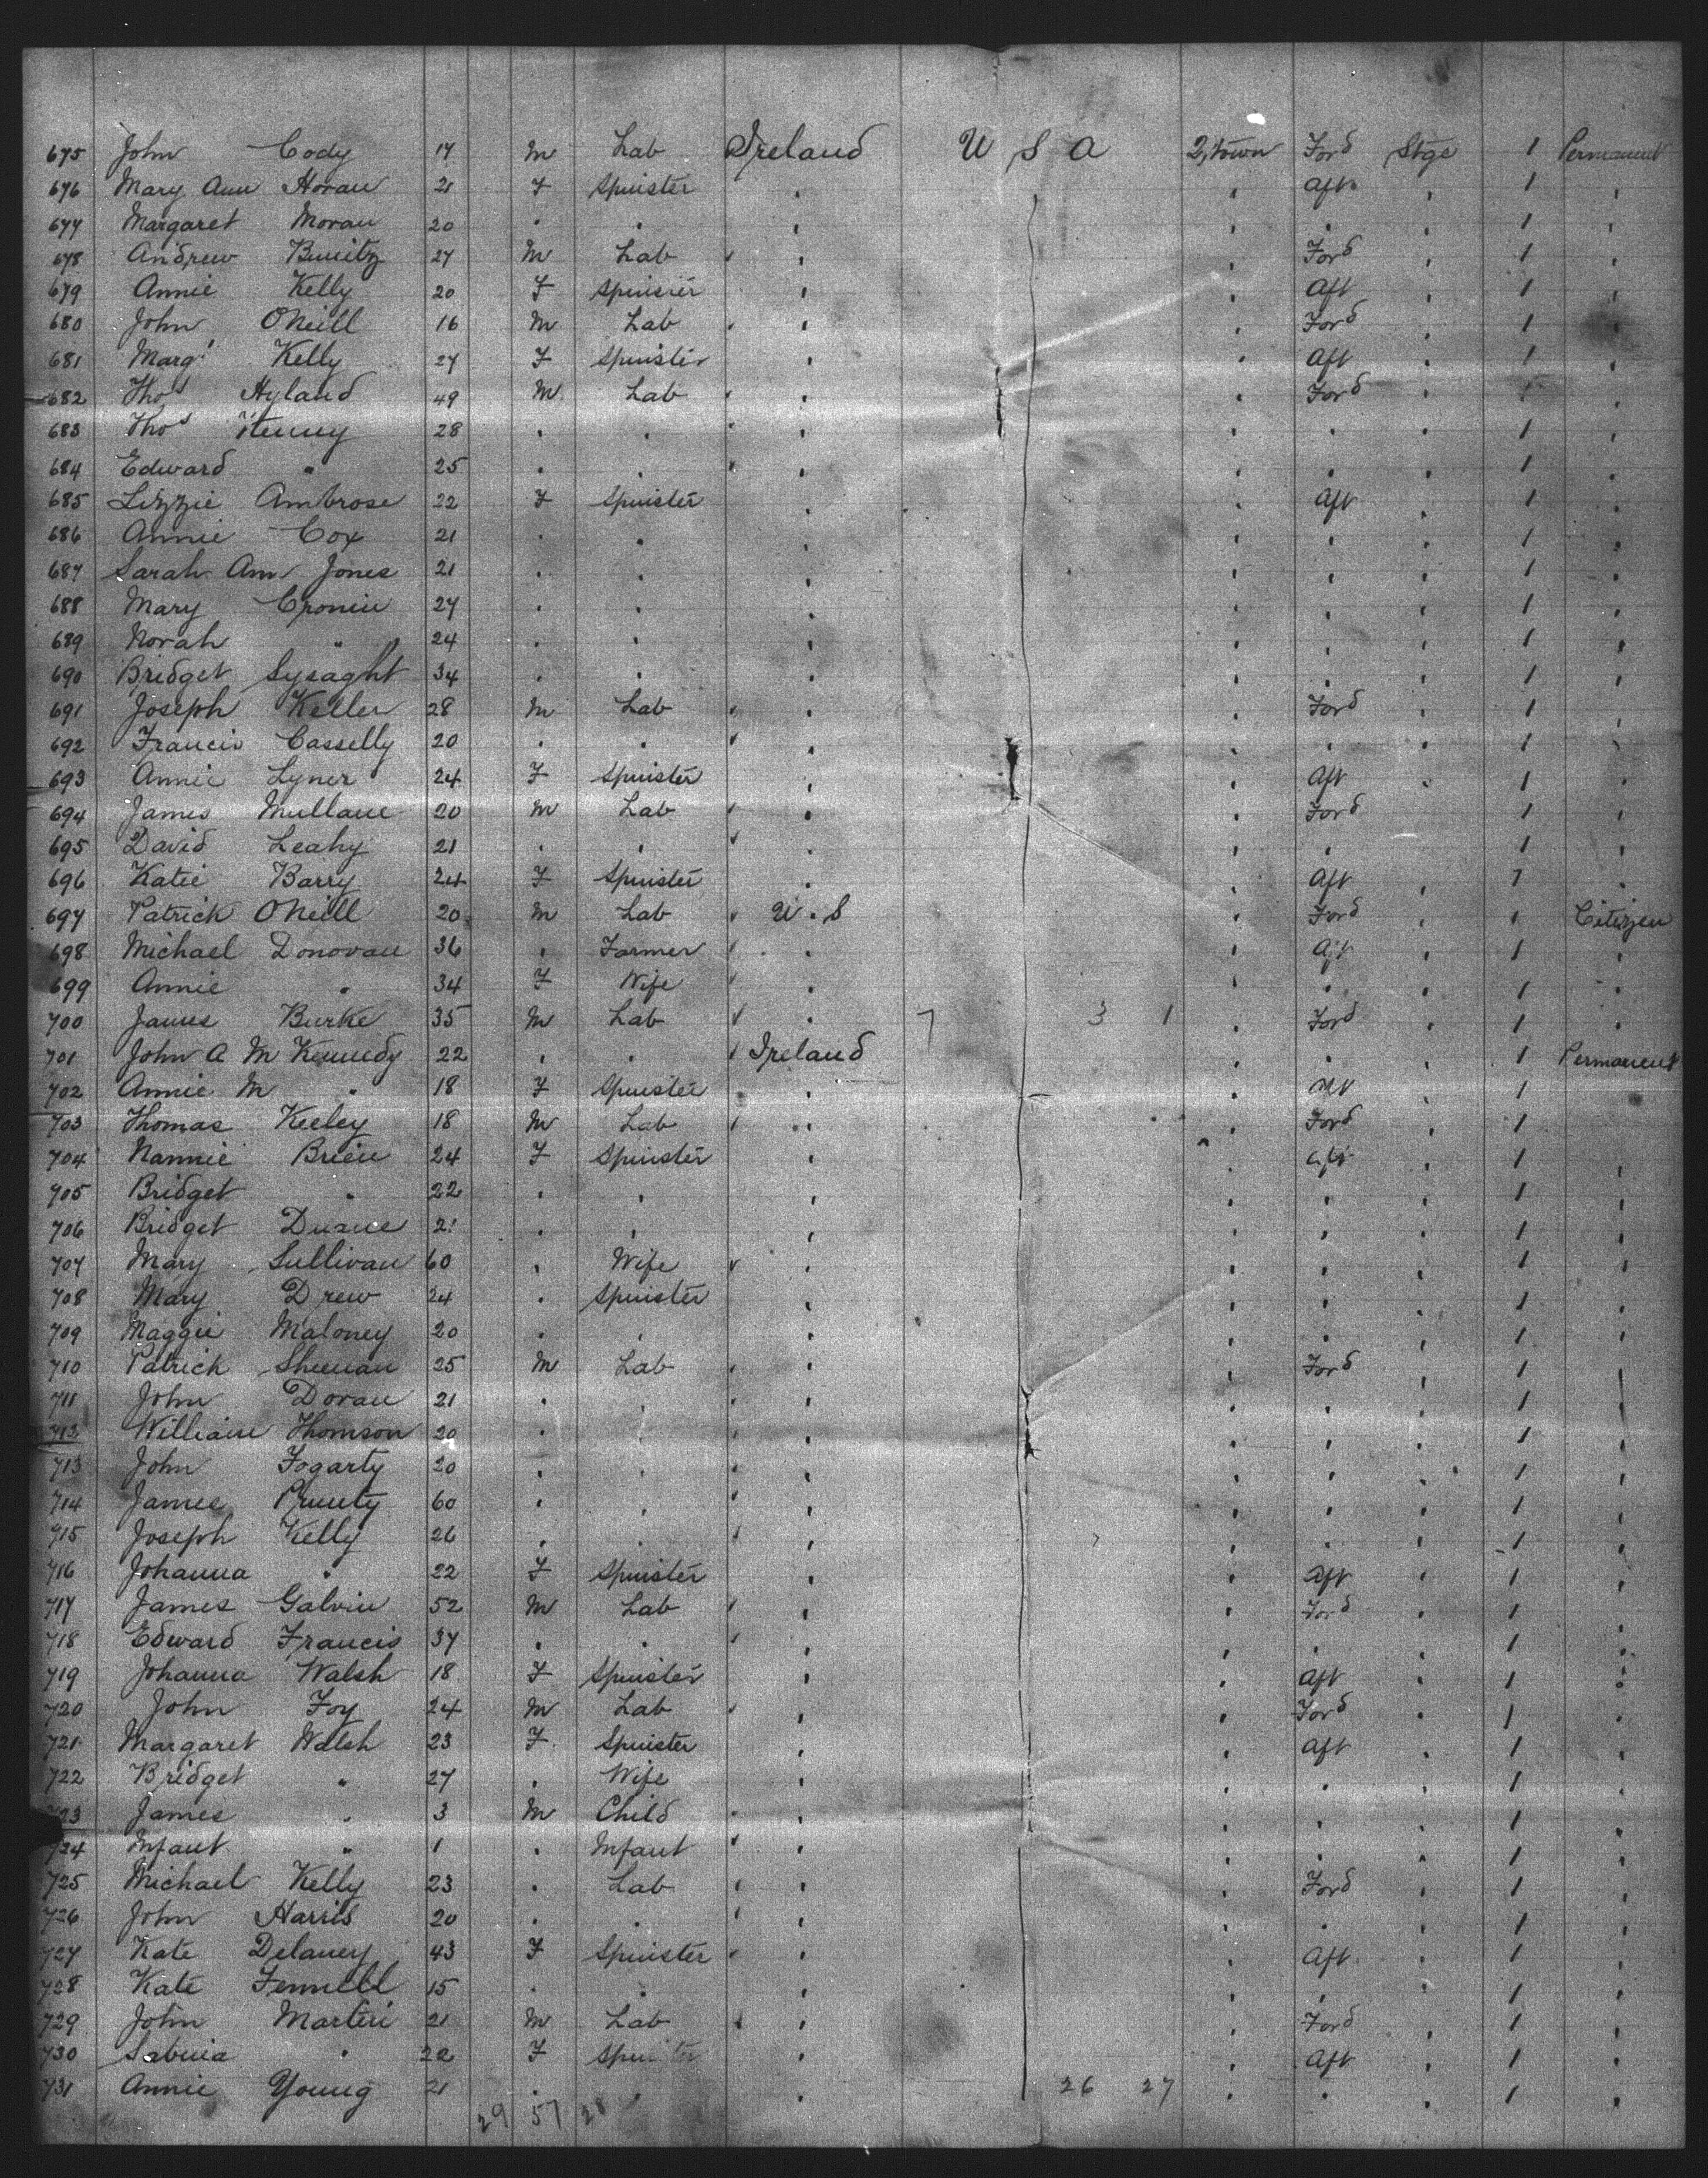 675 John Cody 17 M Lab Ireland U S A Q,town Ford Stge 1 Permanent
676 Mary Ann Horan 21 F Spinster " " Aft " 1 "
677 Margaret Moran 20 " " " " " " 1 "
678 Andrew 27 M Lab " " Ford " 1 "
679 Annie Kelly 20 F Spinster " " Aft " 1 "
680 John ONeill 16 M Lab " " Ford " 1 "
681 Margt Kelly 27 F Spinster " " Aft " 1 "
682 Thos Hyland 49 M Lab " " Ford " 1 "
683 Thos 28 " " " " " " 1 "
684 Edward " 25 " " " " " " 1 "
685 Lizzie Ambrose 22 F Spinster " " Aft " 1 "
686 Annie Cox 21 " " " " " " 1 "
687 Sarah Ann Jones 21 " " " " " " 1 "
688 Mary Cronin 27 " " " " " " 1 "
689 Norah " 24 " " " " " " 1 "
690 Bridget Lysaght 34 " " " " " " 1 "
691 Joseph Keller 28 M Lab " " Ford " 1 "
692 Francis Casselly 20 " " " " " " 1 "
693 Annie Lyner 24 F Spinster " " Aft " 1 "
694 James Mullane 20 M Lab " " Ford " 1 "
695 David Leahy 21 " " " " " " 1 "
696 Katie Barry 24 F Spinster " " Aft " 1 "
697 Patrick ONeill 20 M Lab U. S " Ford " 1 Citizen
698 Michael Donovan 36 " Farmer " " Aft " 1 "
699 Annie " 34 F Wife " " " " 1 "
700 James Burke 35 M Lab " 7 3 1 " Ford " 1 "
701 John A M Kennedy 22 " " Ireland " " " 1 Permanent
702 Annie M " 18 F Spinster " " Aft " 1 "
703 Thomas Keeley 18 M Lab " " Ford " 1 "
704 Nannie Brien 24 F Spinster " " Aft " 1 "
705 Bridget " 22 " " " " " " 1 "
706 Bridget Duane 21 " " " " " " 1 "
707 Mary Sullivan 60 " Wife " " " " 1 "
708 Mary Drew 24 " Spinster " " " " 1 "
709 Maggie Maloney 20 " " " " " " 1 "
710 Patrick Sheenan 25 M Lab " " Ford " 1 "
711 John Doran 21 " " " " " " 1 "
712 William Thomson 20 " " " " " " 1 "
713 John Fogarty 20 " " " " " " 1 "
714 James Prunty 60 " " " " " " 1 "
715 Joseph Kelly 26 " " " " " " 1 "
716 Johanna " 22 F Spinster " " Aft " 1 "
717 James Galvin 52 M Lab " " Ford " 1 "
718 Edward Francis 37 " " " " " " 1 "
719 Johanna Walsh 18 F Spinster " " Aft " 1 "
720 John Foy 24 M Lab " " Ford " 1 "
721 Margaret Walsh 23 F Spinster " " Aft " 1 "
722 Bridget " 27 " Wife " " " " 1 "
723 James " 3 M Child " " " " 1 "
724 Infant " 1 " Infant " " " " 1 "
725 Michael Kelly 23 " Lab " " Ford " 1 "
726 John Harris 20 " " " " " " 1 "
727 Kate Delaney 43 F Spinster " " Aft " 1 "
728 Kate Fennell 15 " " " " " " 1 "
729 John Martin 21 M Lab " " Ford " 1 "
730 Sabina " 22 F Spinster " " Aft " 1 "
731 Annie Young 21 " " " 26 27 " " " 1 "
29 57 28